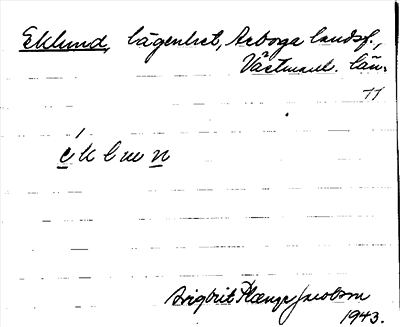 Eklund, lägenhet, Arboga landsf.,
Västmanl. län.
éklun
Brigbrit Plænge Jacobson
1943.